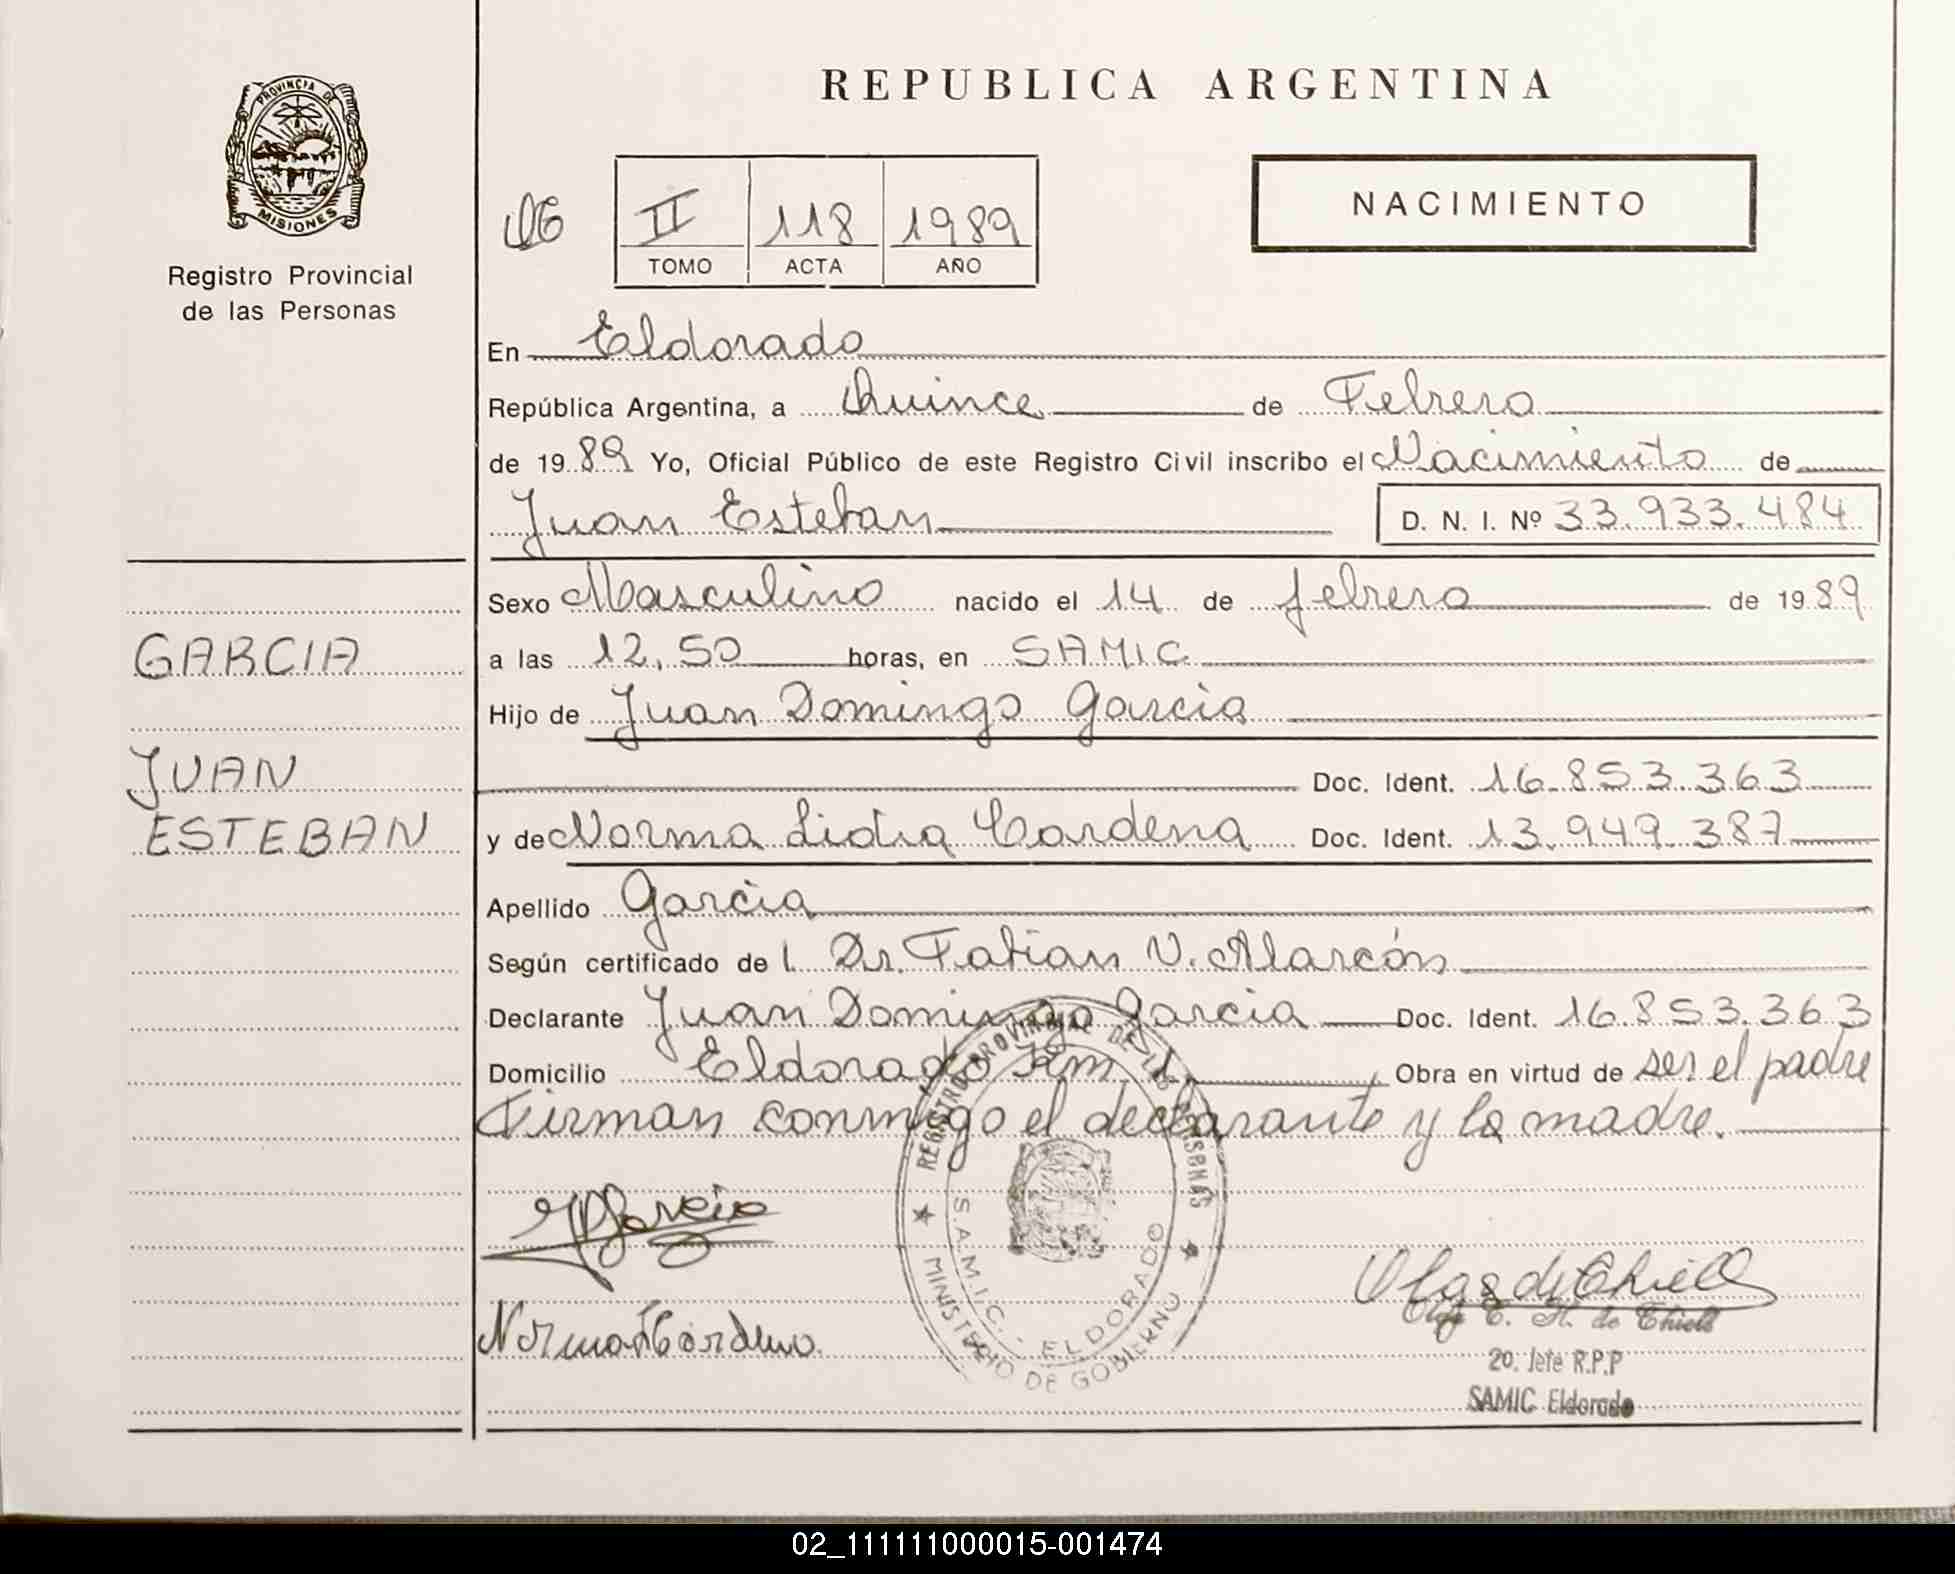 PROVINCIA DE
MISIONES
Registro Provincial
de las Personas
REPUBLICA ARGENTINA
NACIMIENTO
II 118 1989
TOMO ACTA AÑO
En Eldorado
República Argentina, a Quince de Febrero
de 1989 Yo, Oficial Público de este Registro Civil inscribo el Nacimiento de
Juan Esteban D. N. I. Nº 33.933.484
Sexo Masculino nacido el 14 de febrero de 1989
a las 12,50 horas, en SAMIC
Hijo de Juan Domingo Garcia
Doc. Ident. 16.853.363
y de Norma Lidia Cardena Doc. Ident. 13.949.387
Apellido Garcia
Según certificado de l Dr. Fabian V. Alarcón
Declarante Juan Domingo Garcia Doc. Ident. 16.853.363
Domicilio Eldorado Km. 1 Obra en virtud de ser el padre
Firman conmigo el declarante y la madre.
GARCIA
JUAN
ESTEBAN
REGISTRO PROVINCIAL DE LAS PERSONAS
S.A.M.I.C. - ELDORADO
MINISTERIO DE GOBIERNO
Garcia
Norma Cardena
Olga de Thiell
Olga E. H. de Thiell
20. Jefe R.P.P
SAMIC Eldorado
02_111111000015-001474